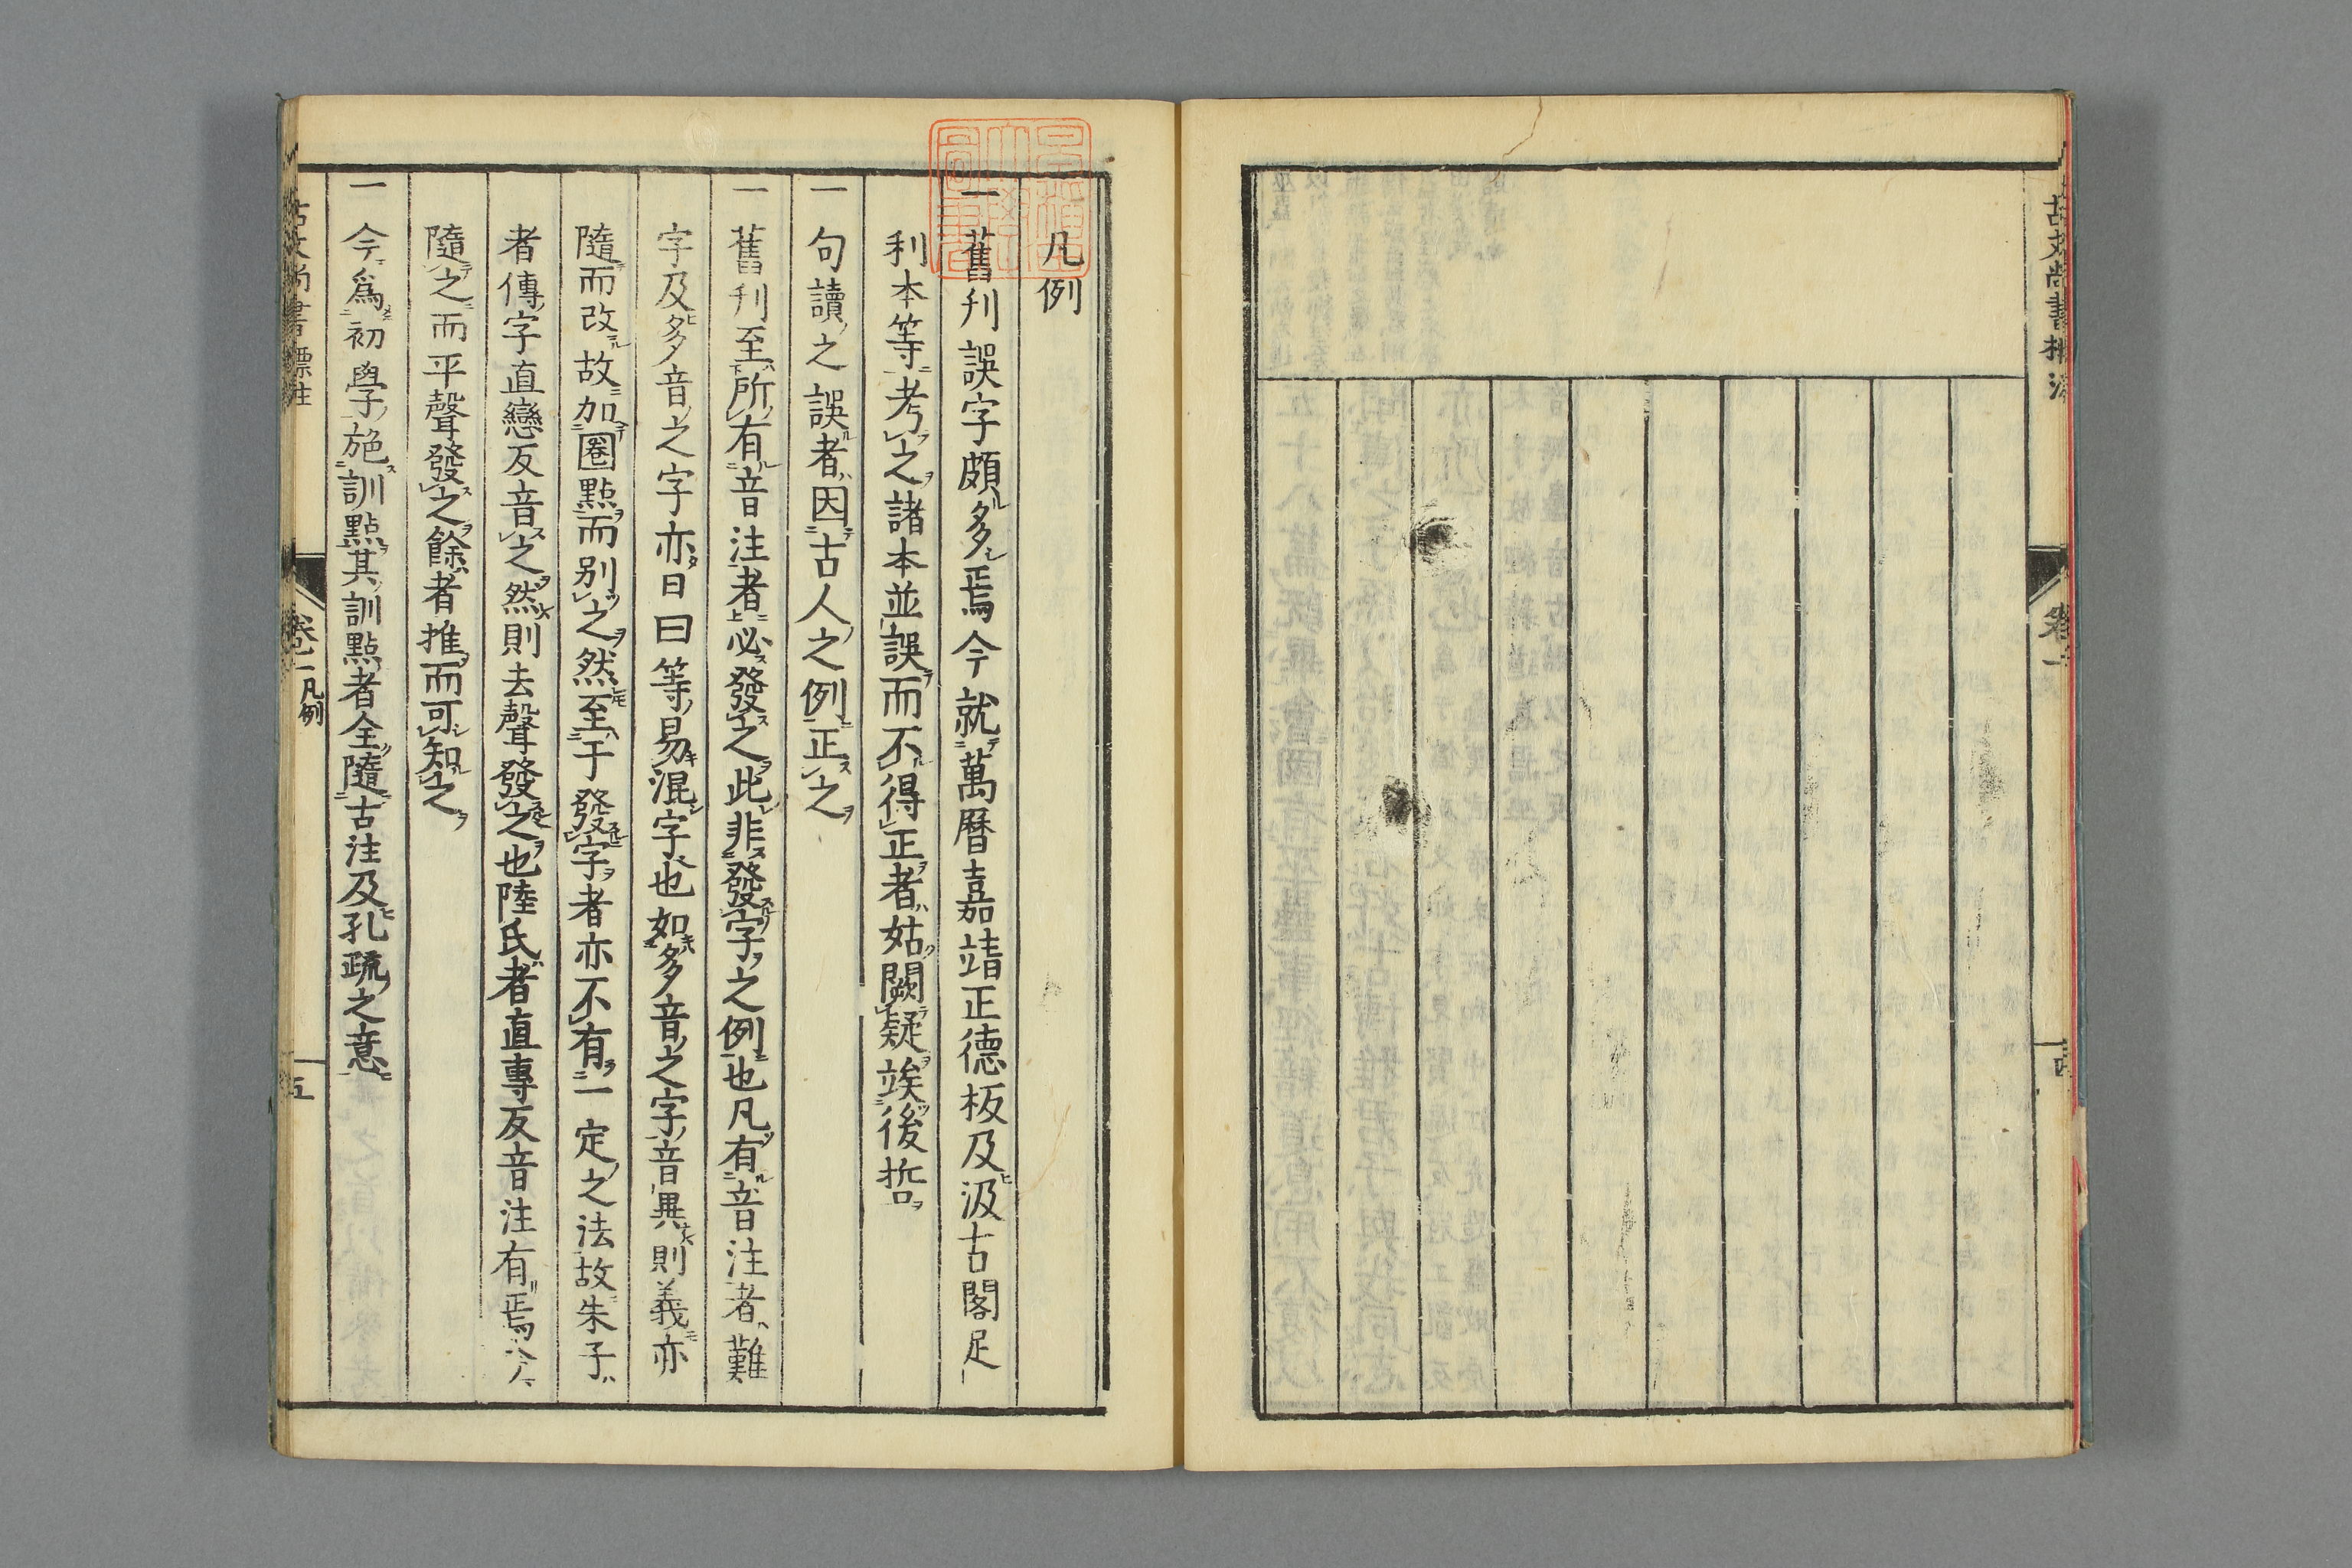 古文尚書標注
卷一
四
凡例
一舊刊誤字頗多焉今就萬曆嘉靖正德板及汲古閣足
利本等考之諸本並誤而不得正者姑闕疑竢後哲
一句讀之誤者因古人之例正之
一舊刊至所有音注者必發之此非發字之例也凡有音注者難
字及多音之字亦日曰等易混字也如多音之字音異則義亦
隨而改故加圈點而別之然至于發字者亦不有一定之法故朱子
者傳字直戀反音之然則去聲發之也陸氏者直專反音注有焉今
隨之而平聲發之餘者推而可知之
一今爲初學施訓點其訓點者全隨古注及孔疏之意
古文尚書標注
卷一凡例
五